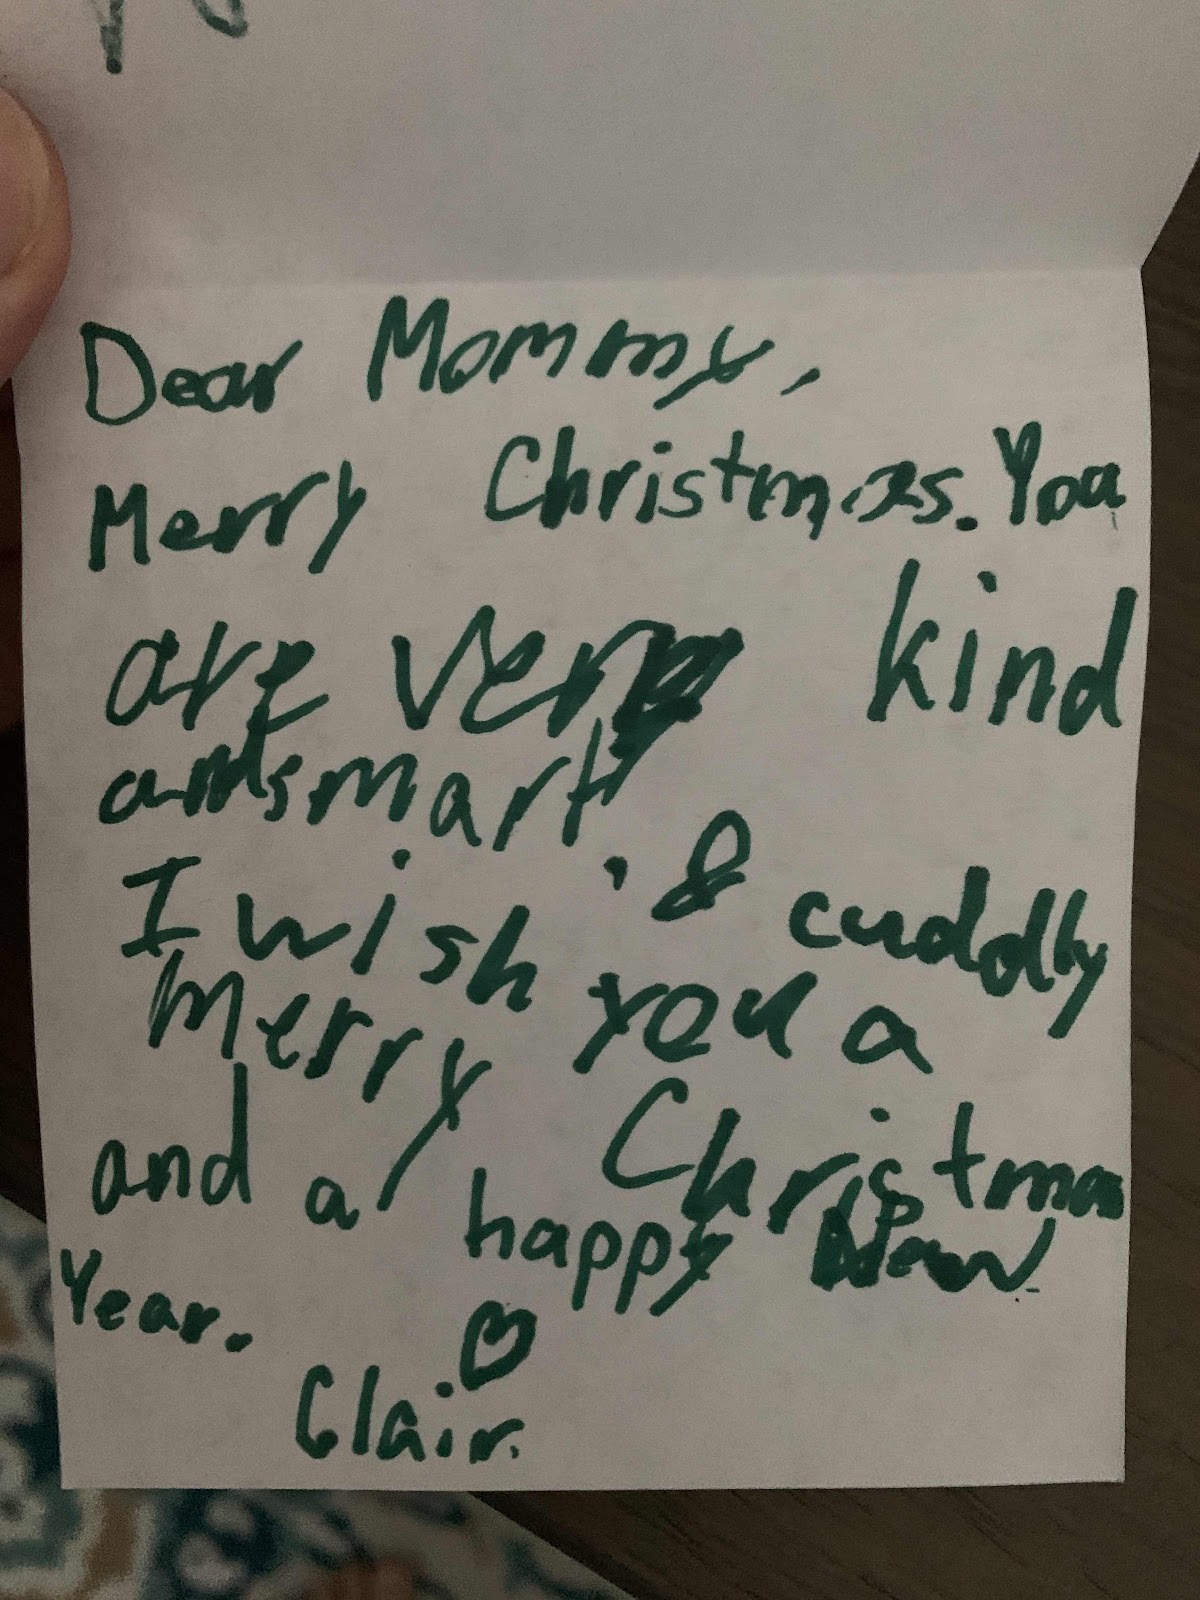 Dear Mommy,
Merry Christmas. You
are very kind
and smart. & cuddly
I wish you a
Merry Christmas
and a happy New
Year.
Clair.